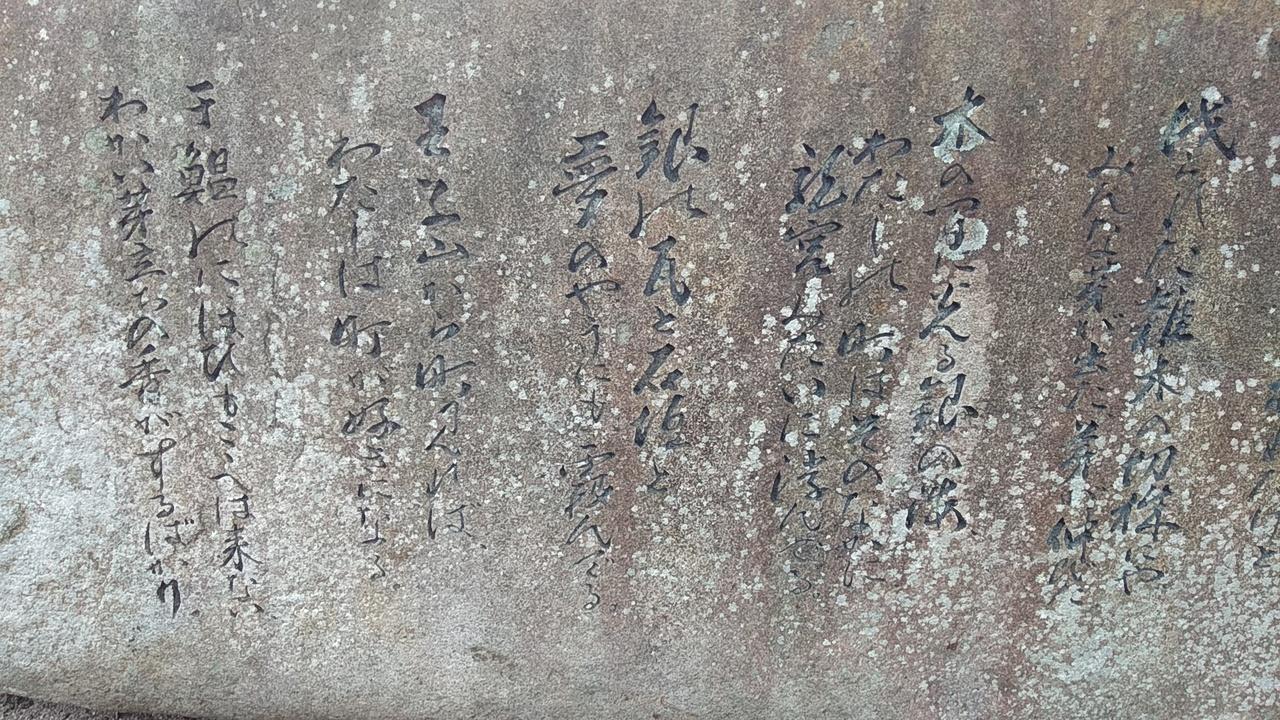 枯れたけど
伐られた雑木の切株にや
みんな芽が出た芽が伸びた
木の間に光る銀の海
わたしの町はそのなかに
龍宮みたいに浮んでる
銀の瓦と石垣と
夢のやうにも霞んでる
王子山から町見れば
わたしは町が好きになる
干鰮のにほひもここへは来ない
わかい芽立ちの香がするばかり